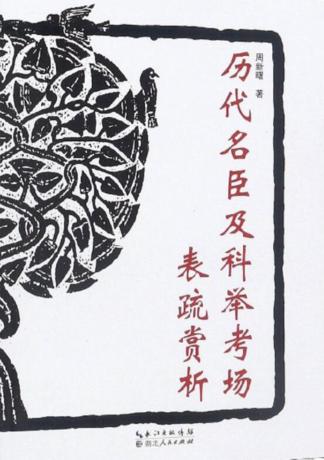 周新曙 著
历代名臣及科举考场
表疏赏析
长江出版传媒
湖北人民出版社